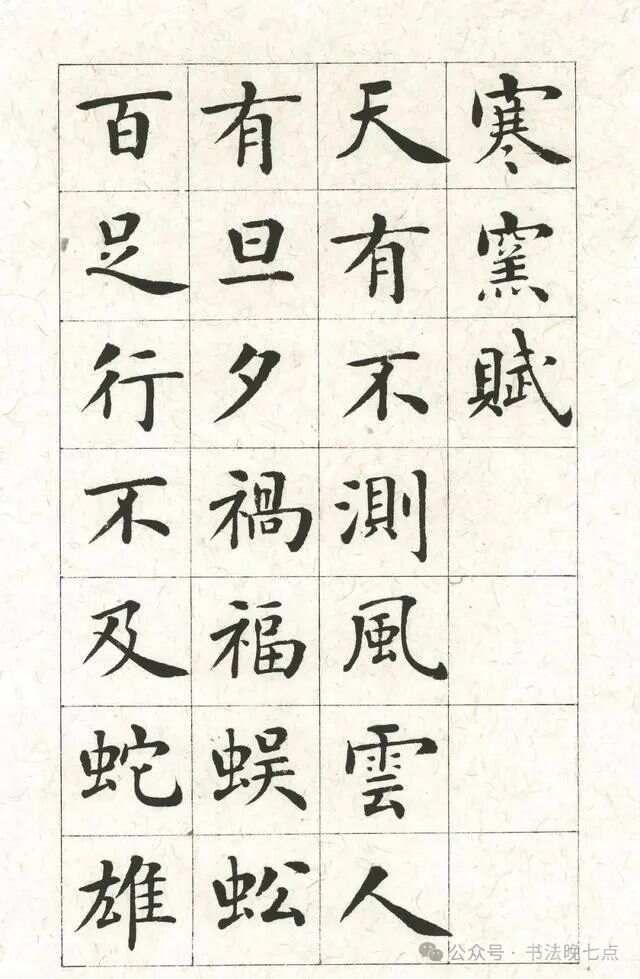 寒窯賦
天有不測風雲人
有旦夕禍福蜈蚣
百足行不及蛇雄
公众号·书法晚七点